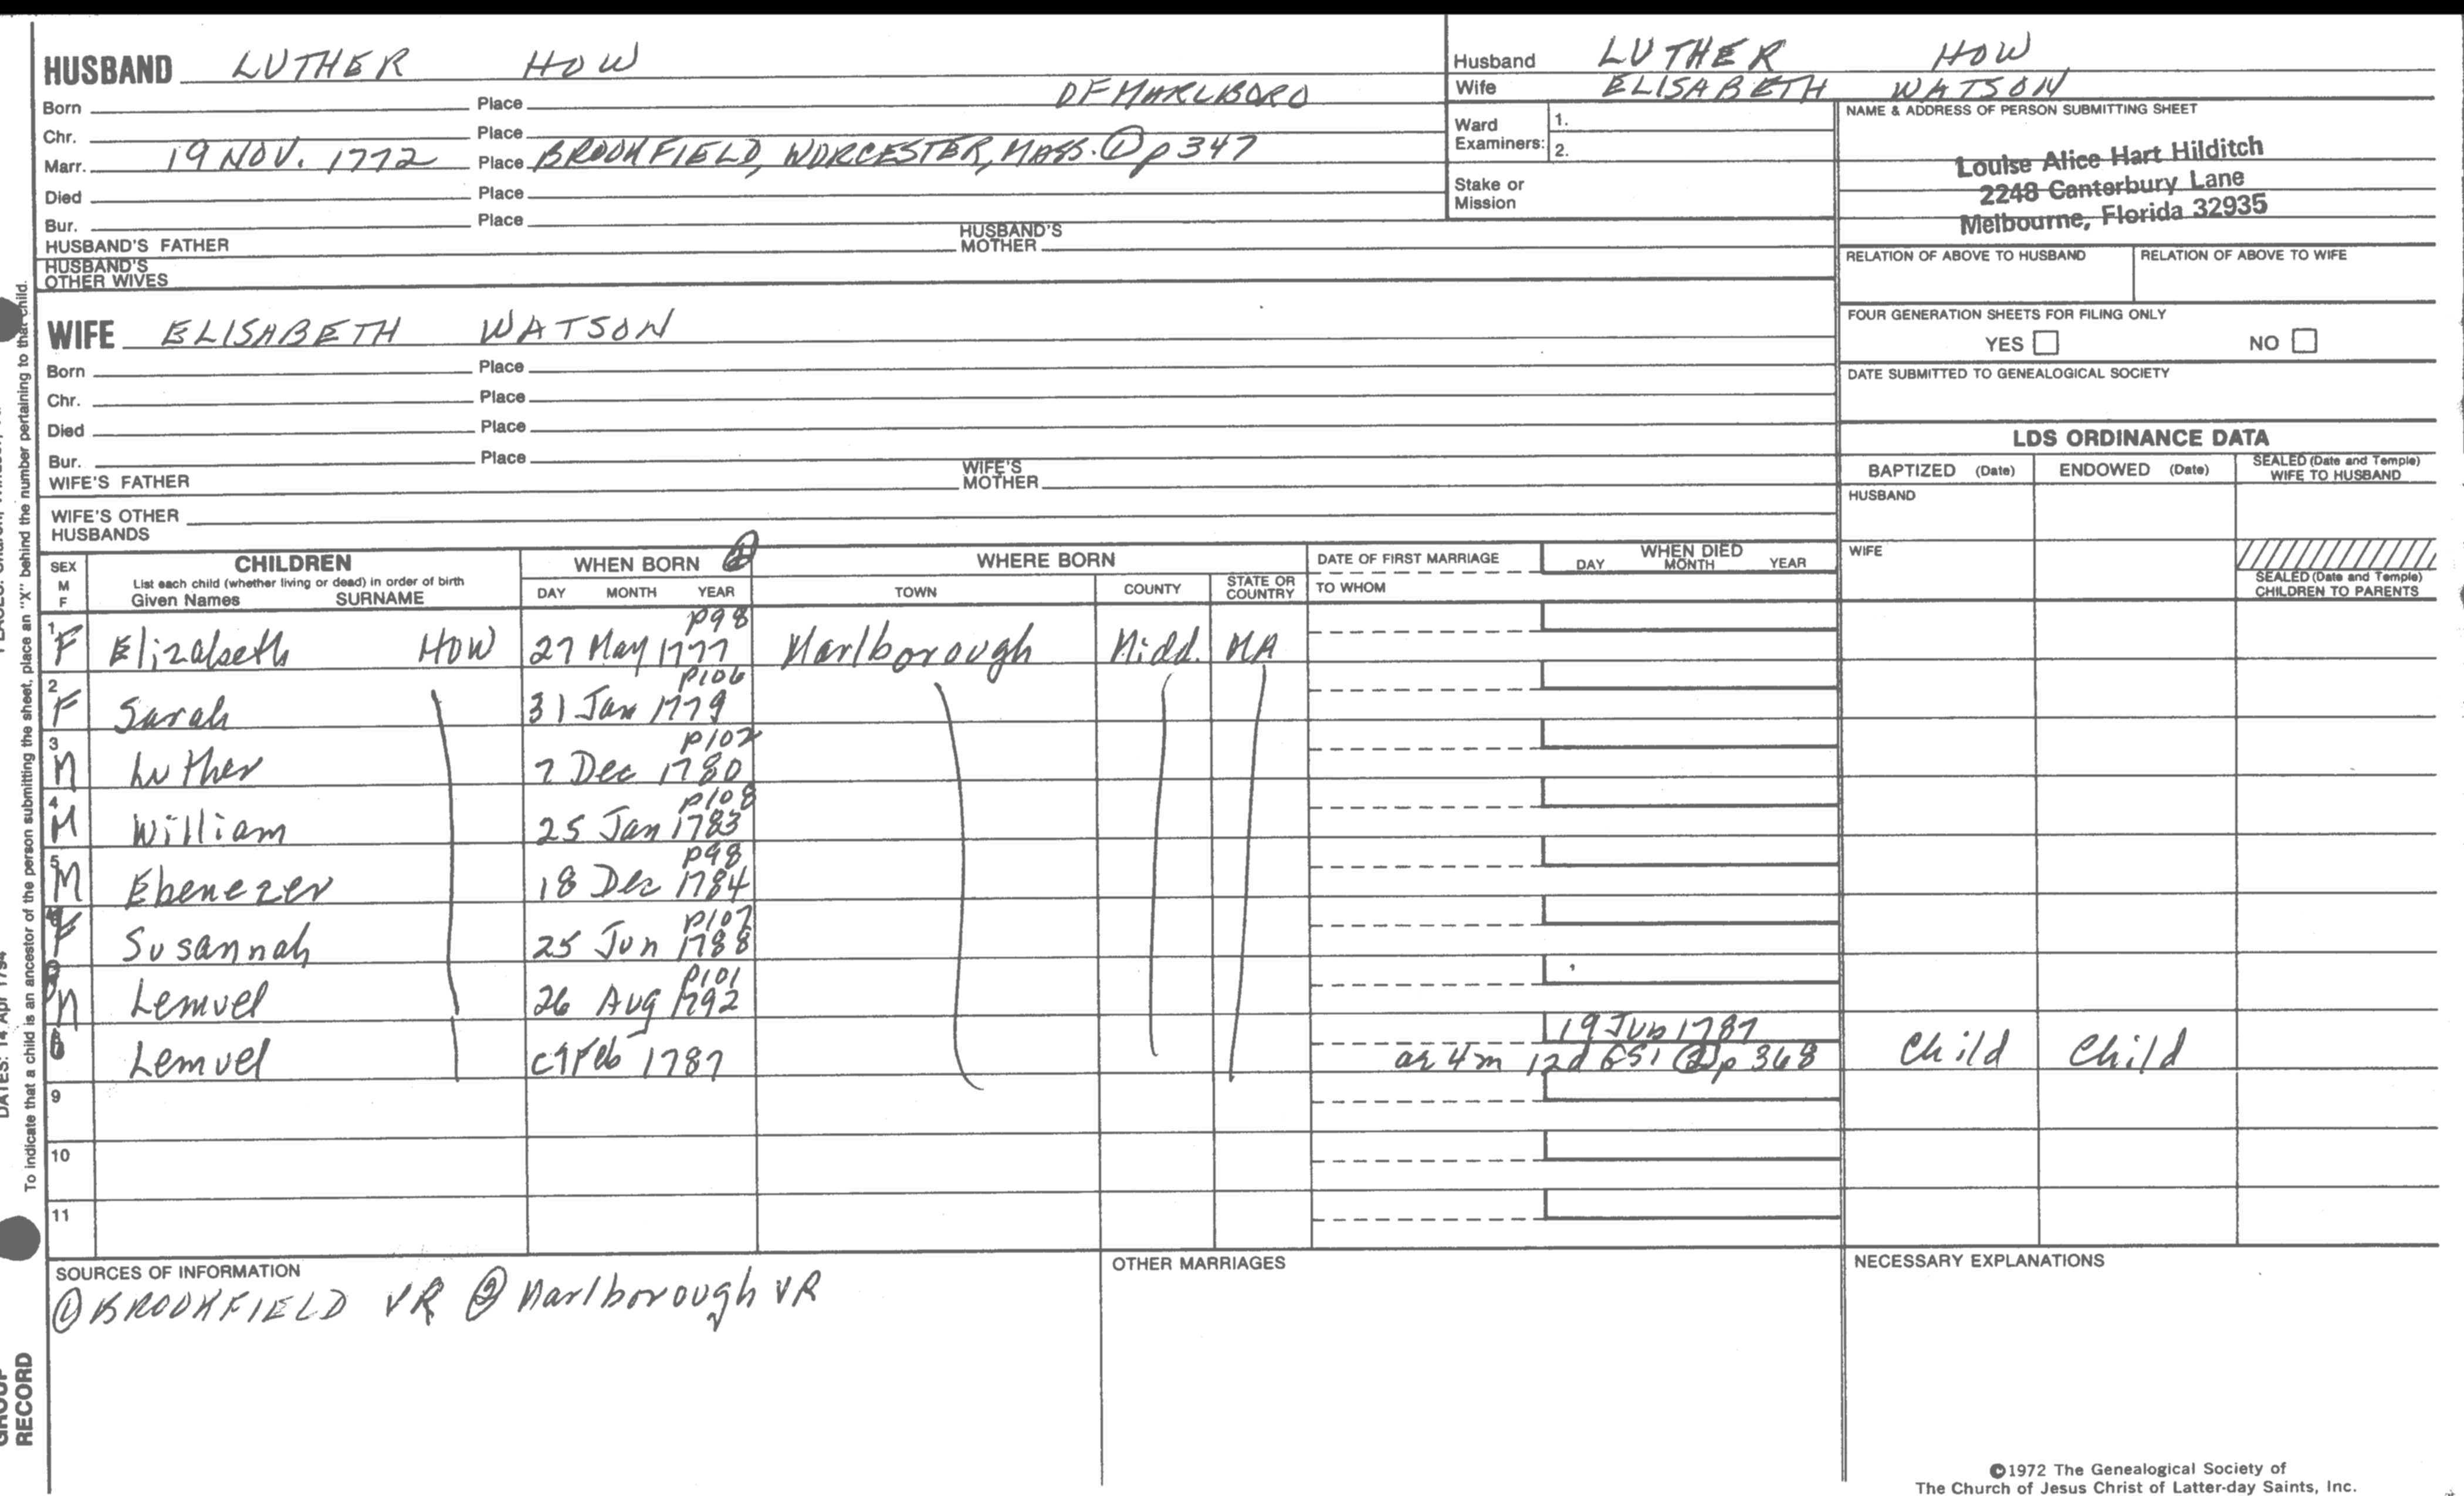 HUSBAND LUTHER HOW
Husband LUTHER HOW
Wife ELISABETH WATSON
Born Place OF MARLBORO
Chr. Place
Marr. 19 NOV. 1772 Place BROOKFIELD, WORCESTER, MASS. ① p 347
Died Place
Bur. Place
HUSBAND'S FATHER HUSBAND'S MOTHER
HUSBAND'S OTHER WIVES
Ward Examiners: 1.
2.
Stake or Mission
NAME & ADDRESS OF PERSON SUBMITTING SHEET
Louise Alice Hart Hilditch
2248 Canterbury Lane
Melbourne, Florida 32935
RELATION OF ABOVE TO HUSBAND RELATION OF ABOVE TO WIFE
FOUR GENERATION SHEETS FOR FILING ONLY
YES NO
DATE SUBMITTED TO GENEALOGICAL SOCIETY
WIFE ELISABETH WATSON
Born Place
Chr. Place
Died Place
Bur. Place
WIFE'S FATHER WIFE'S MOTHER
WIFE'S OTHER HUSBANDS
LDS ORDINANCE DATA
BAPTIZED (Date) ENDOWED (Date) SEALED (Date and Temple) WIFE TO HUSBAND
HUSBAND
WIFE
SEALED (Date and Temple) CHILDREN TO PARENTS
SEX M F
CHILDREN
List each child (whether living or dead) in order of birth
Given Names SURNAME
WHEN BORN ②
DAY MONTH YEAR
WHERE BORN
TOWN COUNTY STATE OR COUNTRY
DATE OF FIRST MARRIAGE
TO WHOM
WHEN DIED
DAY MONTH YEAR
p98
1 F Elizabeth HOW 27 May 1777 Marlborough Midd. MA
p106
2 F Sarah 31 Jan 1779
p102
3 M Luther 7 Dec 1780
p108
4 M William 25 Jan 1783
p98
5 M Ebenezer 18 Dec 1784
p107
F Susannah 25 Jun 1788
p101
M Lemuel 26 Aug 1792
19 Jun 1787
Lemuel c7 Feb 1787 ae 4m 12d GS1 ② p 368 Child Child
9
10
11
SOURCES OF INFORMATION
① BROOKFIELD VR ② Marlborough VR
OTHER MARRIAGES
NECESSARY EXPLANATIONS
©1972 The Genealogical Society of
The Church of Jesus Christ of Latter-day Saints, Inc.
To indicate that a child is an ancestor of the person submitting the sheet, place an "X" behind the number pertaining to that child.
DATES: 14 Apr 1794
GROUP
RECORD